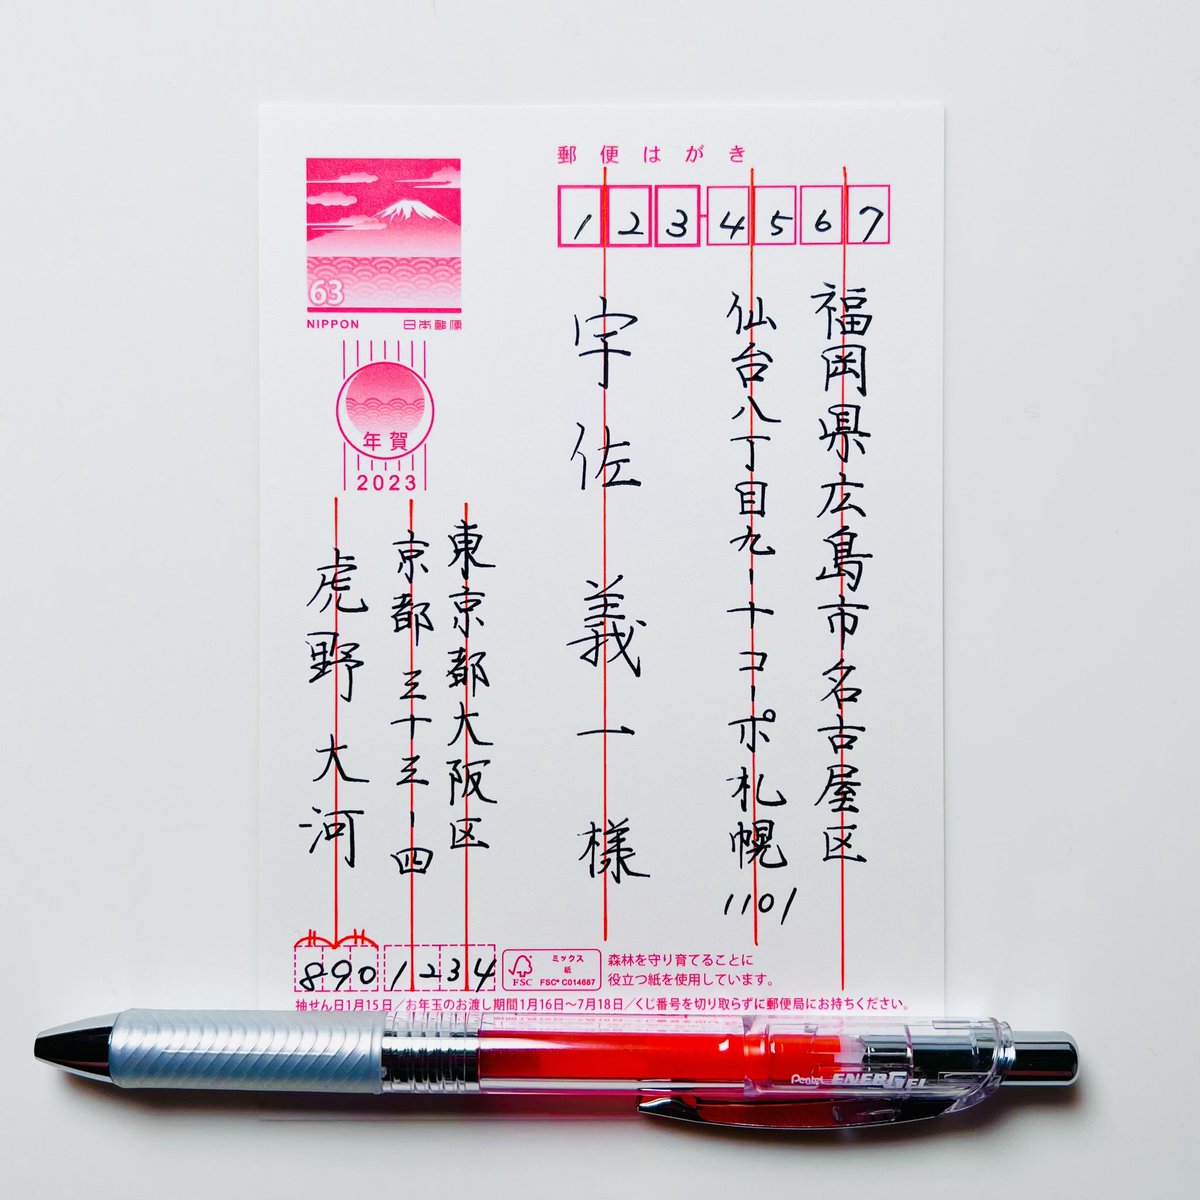 郵便はがき
123-4567
福岡県広島市名古屋区
仙台八丁目九ー十コーポ札幌1101
宇佐義一様
63
NIPPON 日本郵便
年賀
2023
東京都大阪区
京都三十三ー四
虎野大河
890 1234
FSC
ミックス
紙
FSC® C014687
森林を守り育てることに
役立つ紙を使用しています。
抽せん日1月15日／お年玉のお渡し期間1月16日～7月18日／くじ番号を切り取らずに郵便局にお持ちください。
Pentel ENERGEL